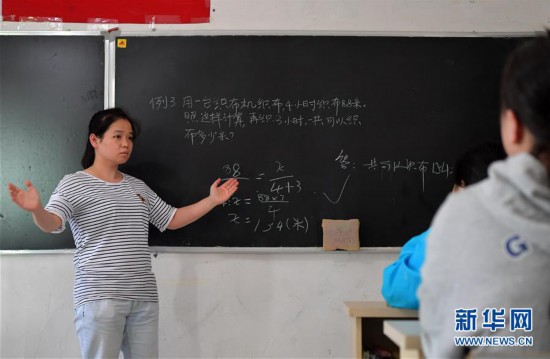 例3 用一台织布机织布,4小时织布88米。
照这样计算,再织3小时,一共可以织
布多少米?
88 = x
4+3
x = 88×7
4
x = 154(米)
答:一共可以织布154
G
新华网
WWW.NEWS.CN